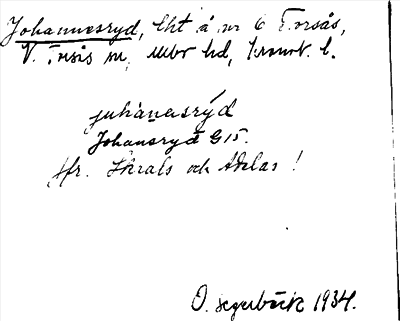 Johannesryd, lht å nr 6 Torsås,
V. Torsås sn, Mbr hd, Kronob. l.
juhànasrýd
Johansryd G15.
Jfr. Skrals och Adelas!
O. Segerbäck 1934.